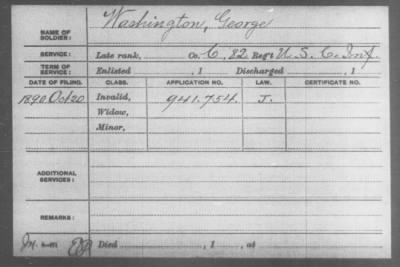 NAME OF SOLDIER: Washington, George
SERVICE: Late rank, Co. C, 82 Reg't U. S. C. Inf.
TERM OF SERVICE: Enlisted , 1 Discharged , 1
DATE OF FILING. CLASS. APPLICATION NO. LAW. CERTIFICATE NO.
1890 Oct 20 Invalid, 941.754. J.
Widow,
Minor,
ADDITIONAL SERVICES:
REMARKS:
Died , 1 , at